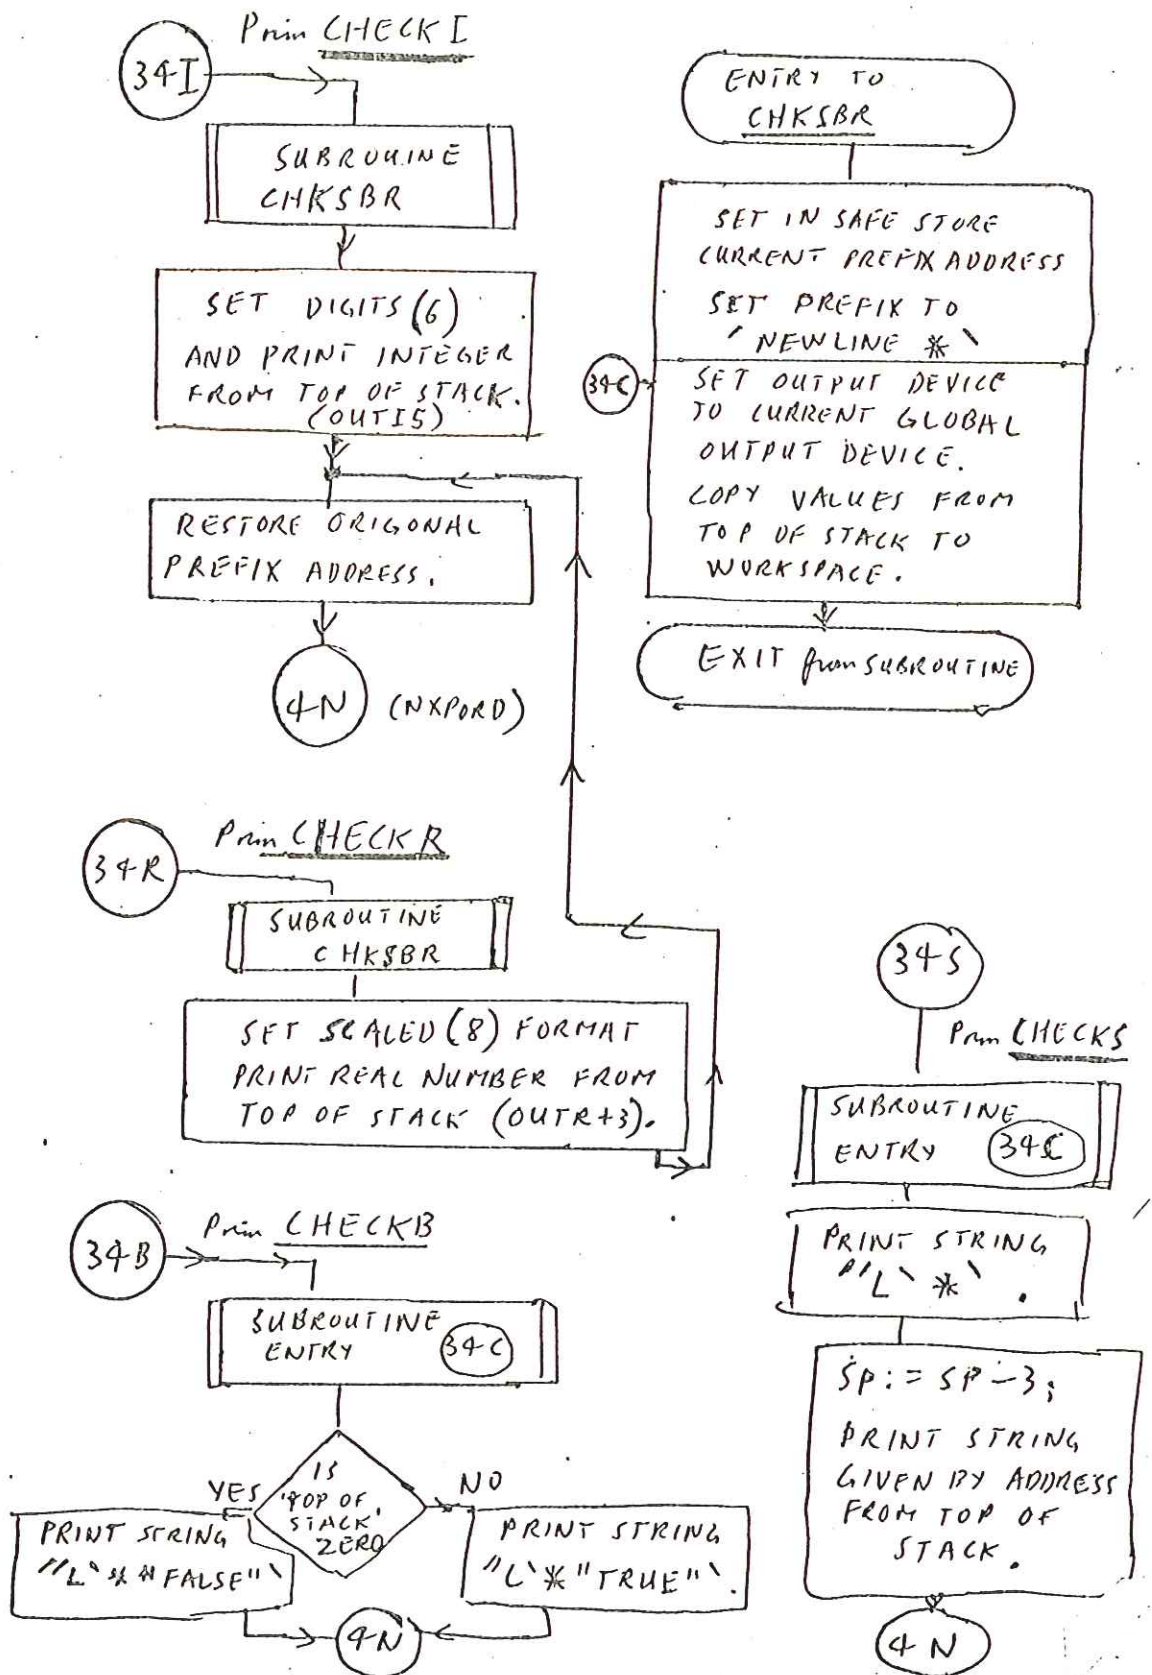 Prim CHECK I
34I
SUBROUINE
CHKSBR
SET DIGITS (6)
AND PRINT INTEGER
FROM TOP OF STACK.
(OUTI5)
RESTORE ORIGONAL
PREFIX ADDRESS.
4N (NXPORD)
ENTRY TO
CHKSBR
SET IN SAFE STORE
CURRENT PREFIX ADDRESS
SET PREFIX TO
' NEWLINE * `
34C
SET OUTPUT DEVICE
TO CURRENT GLOBAL
OUTPUT DEVICE.
COPY VALUES FROM
TOP OF STACK TO
WORKSPACE.
EXIT from SUBROUTINE
Prim CHECKR
34R
SUBROUTINE
CHKSBR
SET SCALED (8) FORMAT
PRINT REAL NUMBER FROM
TOP OF STACK (OUTR+3).
Prim CHECKB
34B
SUBROUTINE
ENTRY 34C
IS
'TOP OF
STACK'
ZERO
YES
NO
PRINT STRING
"L` * "FALSE"`
PRINT STRING
"L` * "TRUE"`.
4N
34S
Prim CHECKS
SUBROUTINE
ENTRY 34C
PRINT STRING
"L` * ` .
SP := SP - 3;
PRINT STRING
GIVEN BY ADDRESS
FROM TOP OF
STACK.
4N